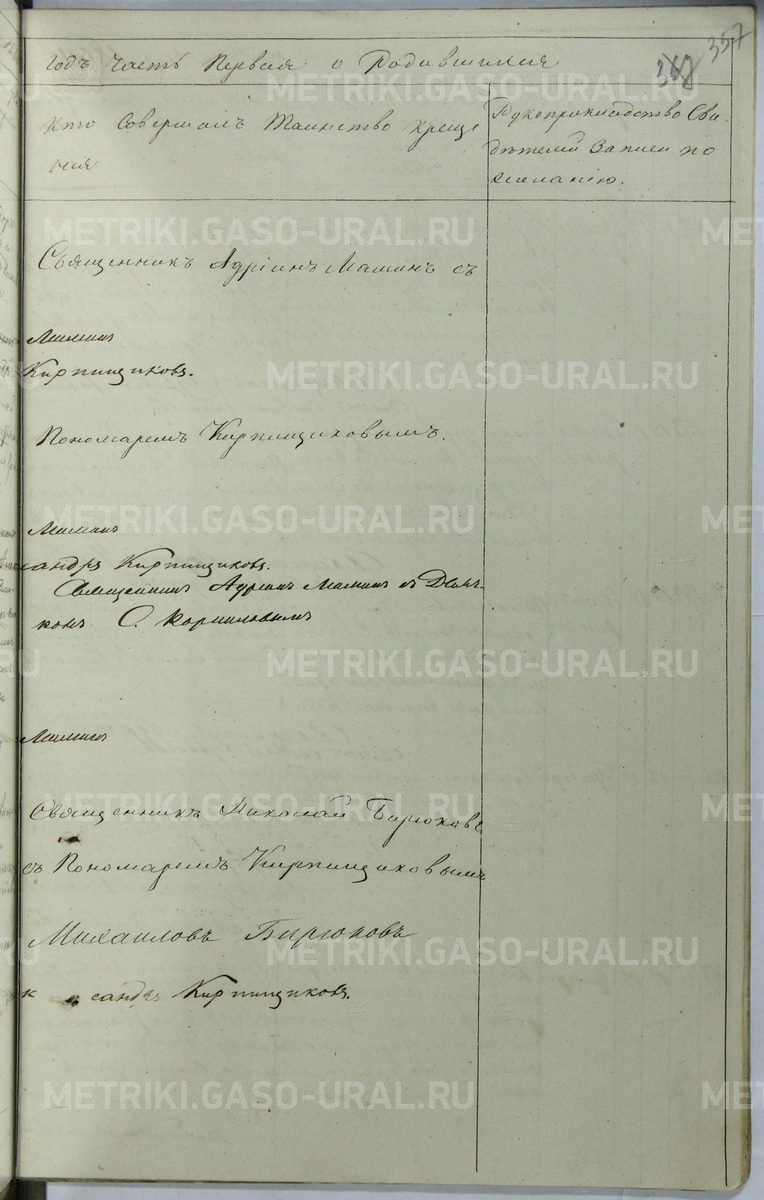 357
Годъ Часть Первая о Родившихся
Кто Совершалъ Таинство креще
ния
Рукоприкладство Сви-
дѣтелей Записи по
желанію.
Священникъ Адріанъ Маминъ съ
Маминъ
Кирпищиковъ.
Пономаремъ Кирпищиковымъ.
Маминъ
сандръ Кирпищиковъ.
Священникъ Адріанъ Маминъ съ Дьяч-
комъ С. Корниловымъ
Маминъ
Священникъ Николай Бирюковъ
съ Пономаремъ Кирпищиковымъ
Михаиловъ Бирюковъ
сандръ Кирпищиковъ.
METRIKI.GASO-URAL.RU